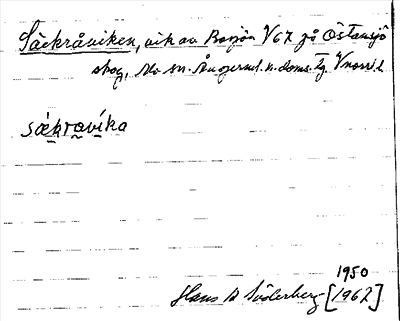 Säckråviken, vik av Borsjön V67 på Östansjö
skog, Alo sn. Ångerml. n. doms. tg. Vnorrl.
sækravika
1950
Hans A Söderberg [1962]